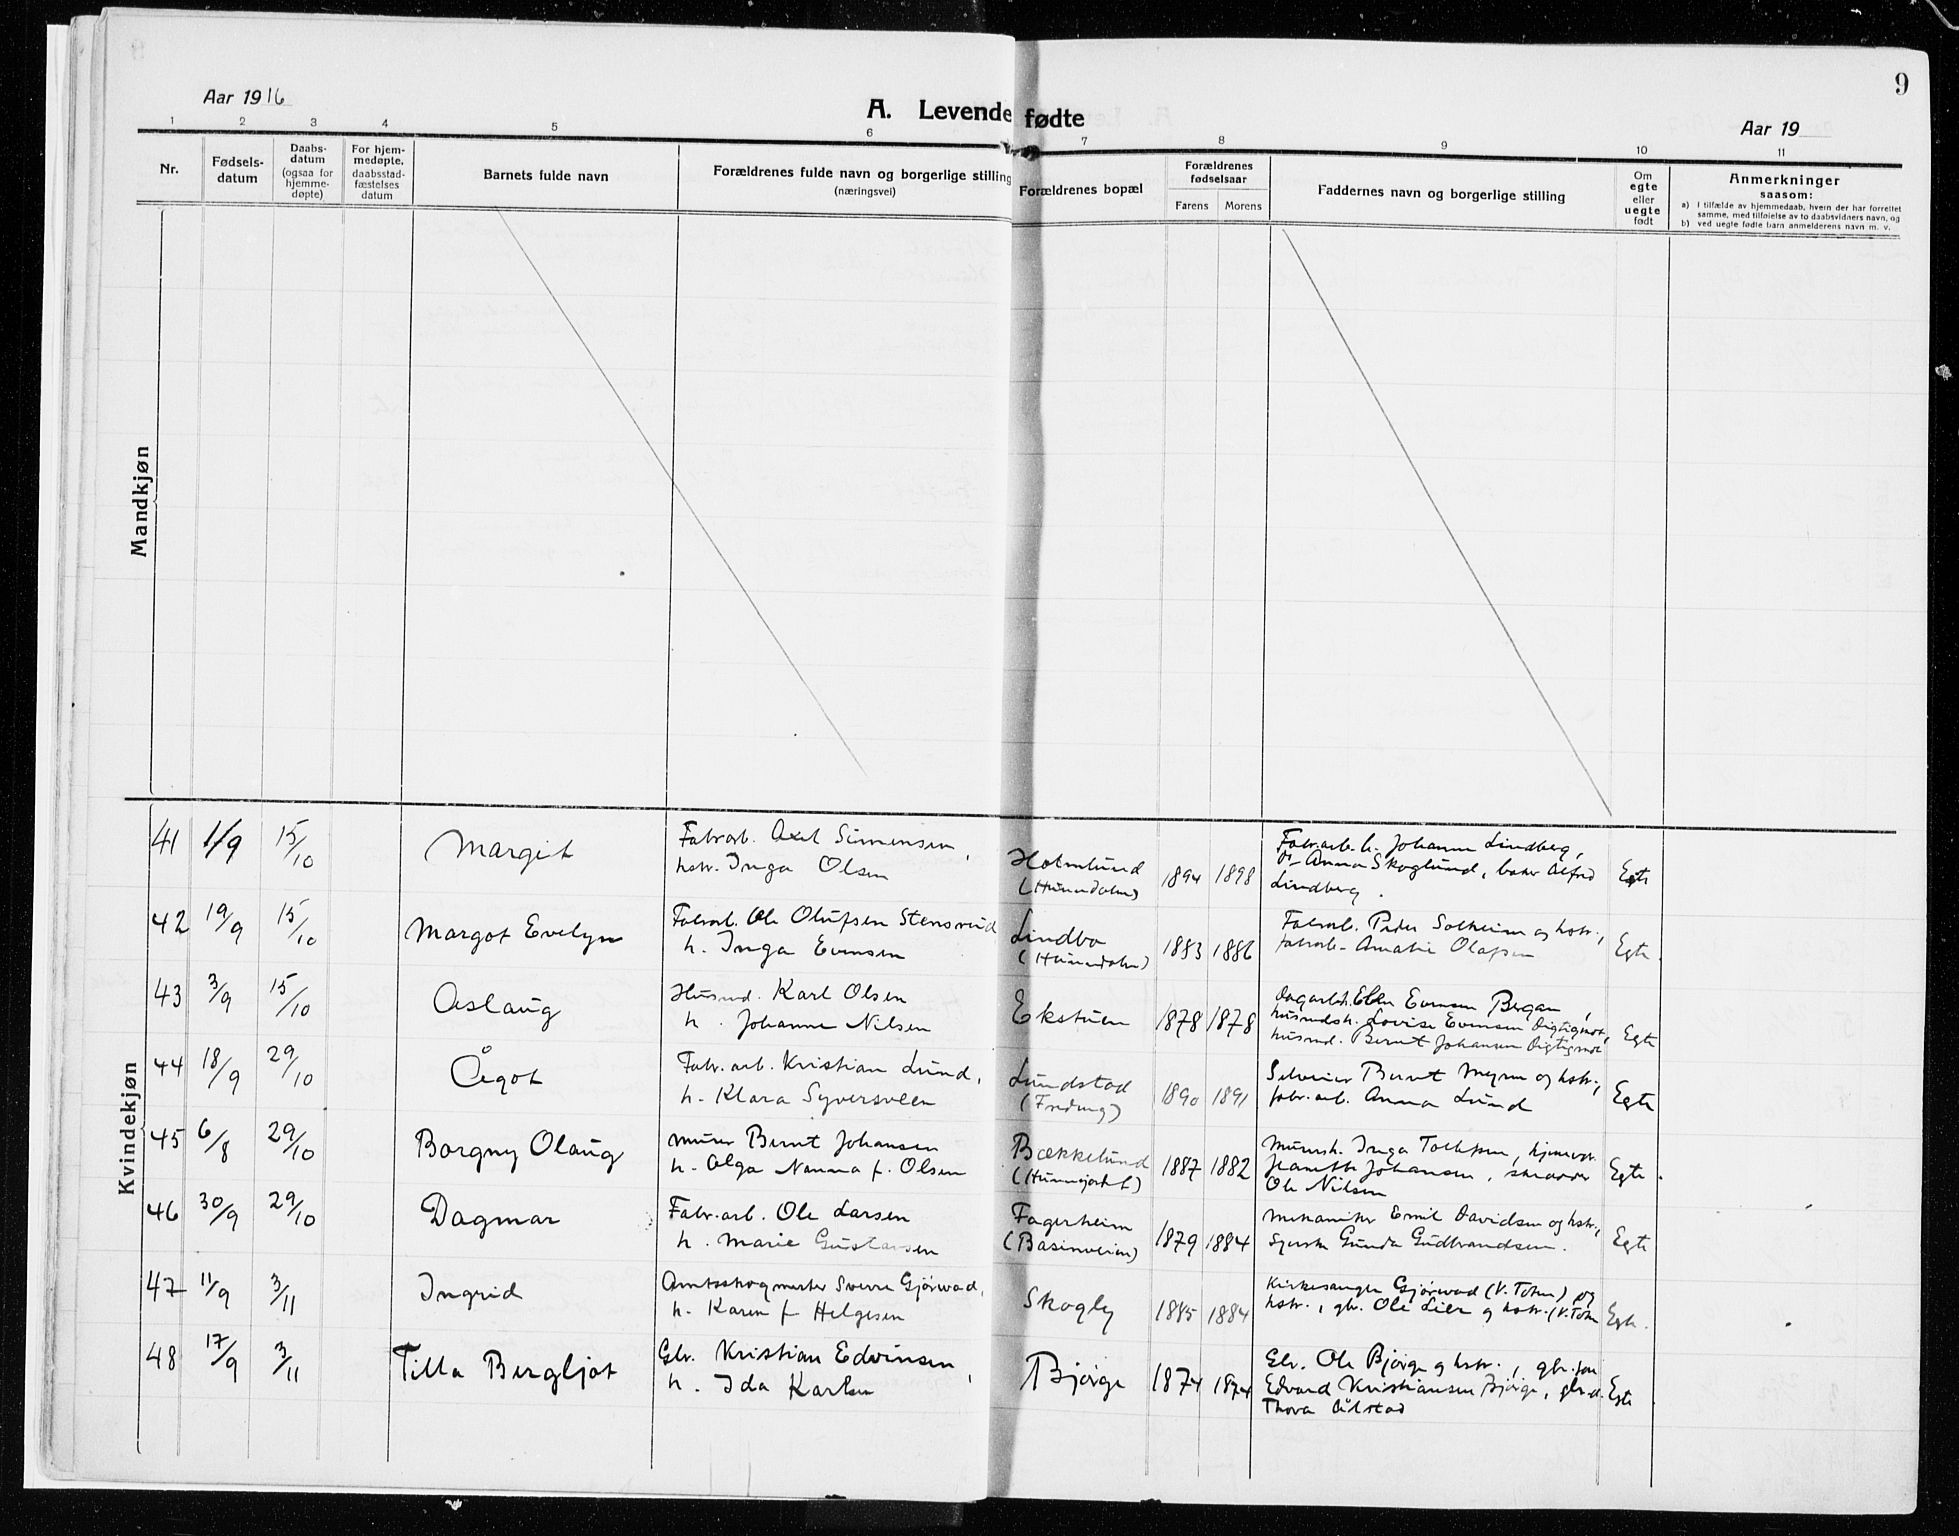 9
Aar 1916
A. Levende fødte
Aar 19
1 2 3 4 5 6 7 8 9 10 11
Nr.
Fødsels-
datum
Daabs-
datum
(ogsaa for
hjemme-
døpte)
For hjem-
medøpte,
daabsstad-
fæstelses
datum
Barnets fulde navn
Forældrenes fulde navn og borgerlige stilling
(næringsvei)
Forældrenes bopæl
Forældrenes
fødselsaar
Farens Morens
Faddernes navn og borgerlige stilling
Om
egte
eller
uegte
født
Anmerkninger
saasom:
a) I tilfælde av hjemmedaab, hvem der har forrettet
samme, med tilføielse av to daabsvidners navn, og
b) ved uegte fødte barn anmelderens navn m. v.
Mandkjøn
Kvindekjøn
41 1/9 15/10 Margit
Fabrarb. Axel Simensen,
hstr. Inga Olsen
Holmlund
(Hunndalen)
1894 1898
Fabr.arb. h. Johanne Lindberg,
Anna Skoglund, baker Alfred
Lindberg.
Egte
42 19/9 15/10 Margot Evelyn
Fabrarb. Ole Olufsen Stensrud
h. Inga Evensen
Lindbo
(Hunndalen)
1883 1886
Fabrarb. Peder Solheim og hstr.,
fabrarb. Amalie Olafsen
Egte.
43 3/9 15/10 Aslaug
Husmd. Karl Olsen
h. Johanne Nilsen
Ekstuen
1878 1878
Dagarb. Evensen Bergan,
husmdsh. Lovise Evensen
husmd. Bernt Johansen
Egte
44 18/9 29/10 Ågot
Fabr.arb. Kristian Lund,
h. Klara Syversveen
Lundstad
1890 1891
Bernt og hstr.,
fabr.arb. Anna Lund
Egte
45 6/8 29/10 Borgny Olaug
Murer Bernt Johansen
h. Olga Nanna f. Olsen
Bækkelund
1887 1882
Murersh. Inga Tollefsen,
Jeanette Johansen, skrædder
Ole Nilsen
Egte.
46 30/9 29/10 Dagmar
Fabr.arb. Ole Larsen
h. Marie Gustavsen
Fagerheim
1879 1884
Mekaniker Emil Davidsen og hstr.,
Syerske Gunda Gudbrandsen.
Egte
47 11/9 3/11 Ingrid
Amtsskogmester Sverre Gjørwad,
h. Karen f. Helgesen
Skogly
1885 1884
Kirkesanger Gjørwad (V. Toten) og
hstr., gbr. Ole Lier og hstr. (V. Toten
Egte.
48 17/9 3/11 Tilla Bergljot
Gbr. Kristian Edvinsen,
h. Ida Karlsen
Bjørge
1874 1874
Gbr. Ole Bjørge og hstr., gbr.søn
Edvard Kristiansen Bjørge, gbr.d.
Thora Ålstad
Egte